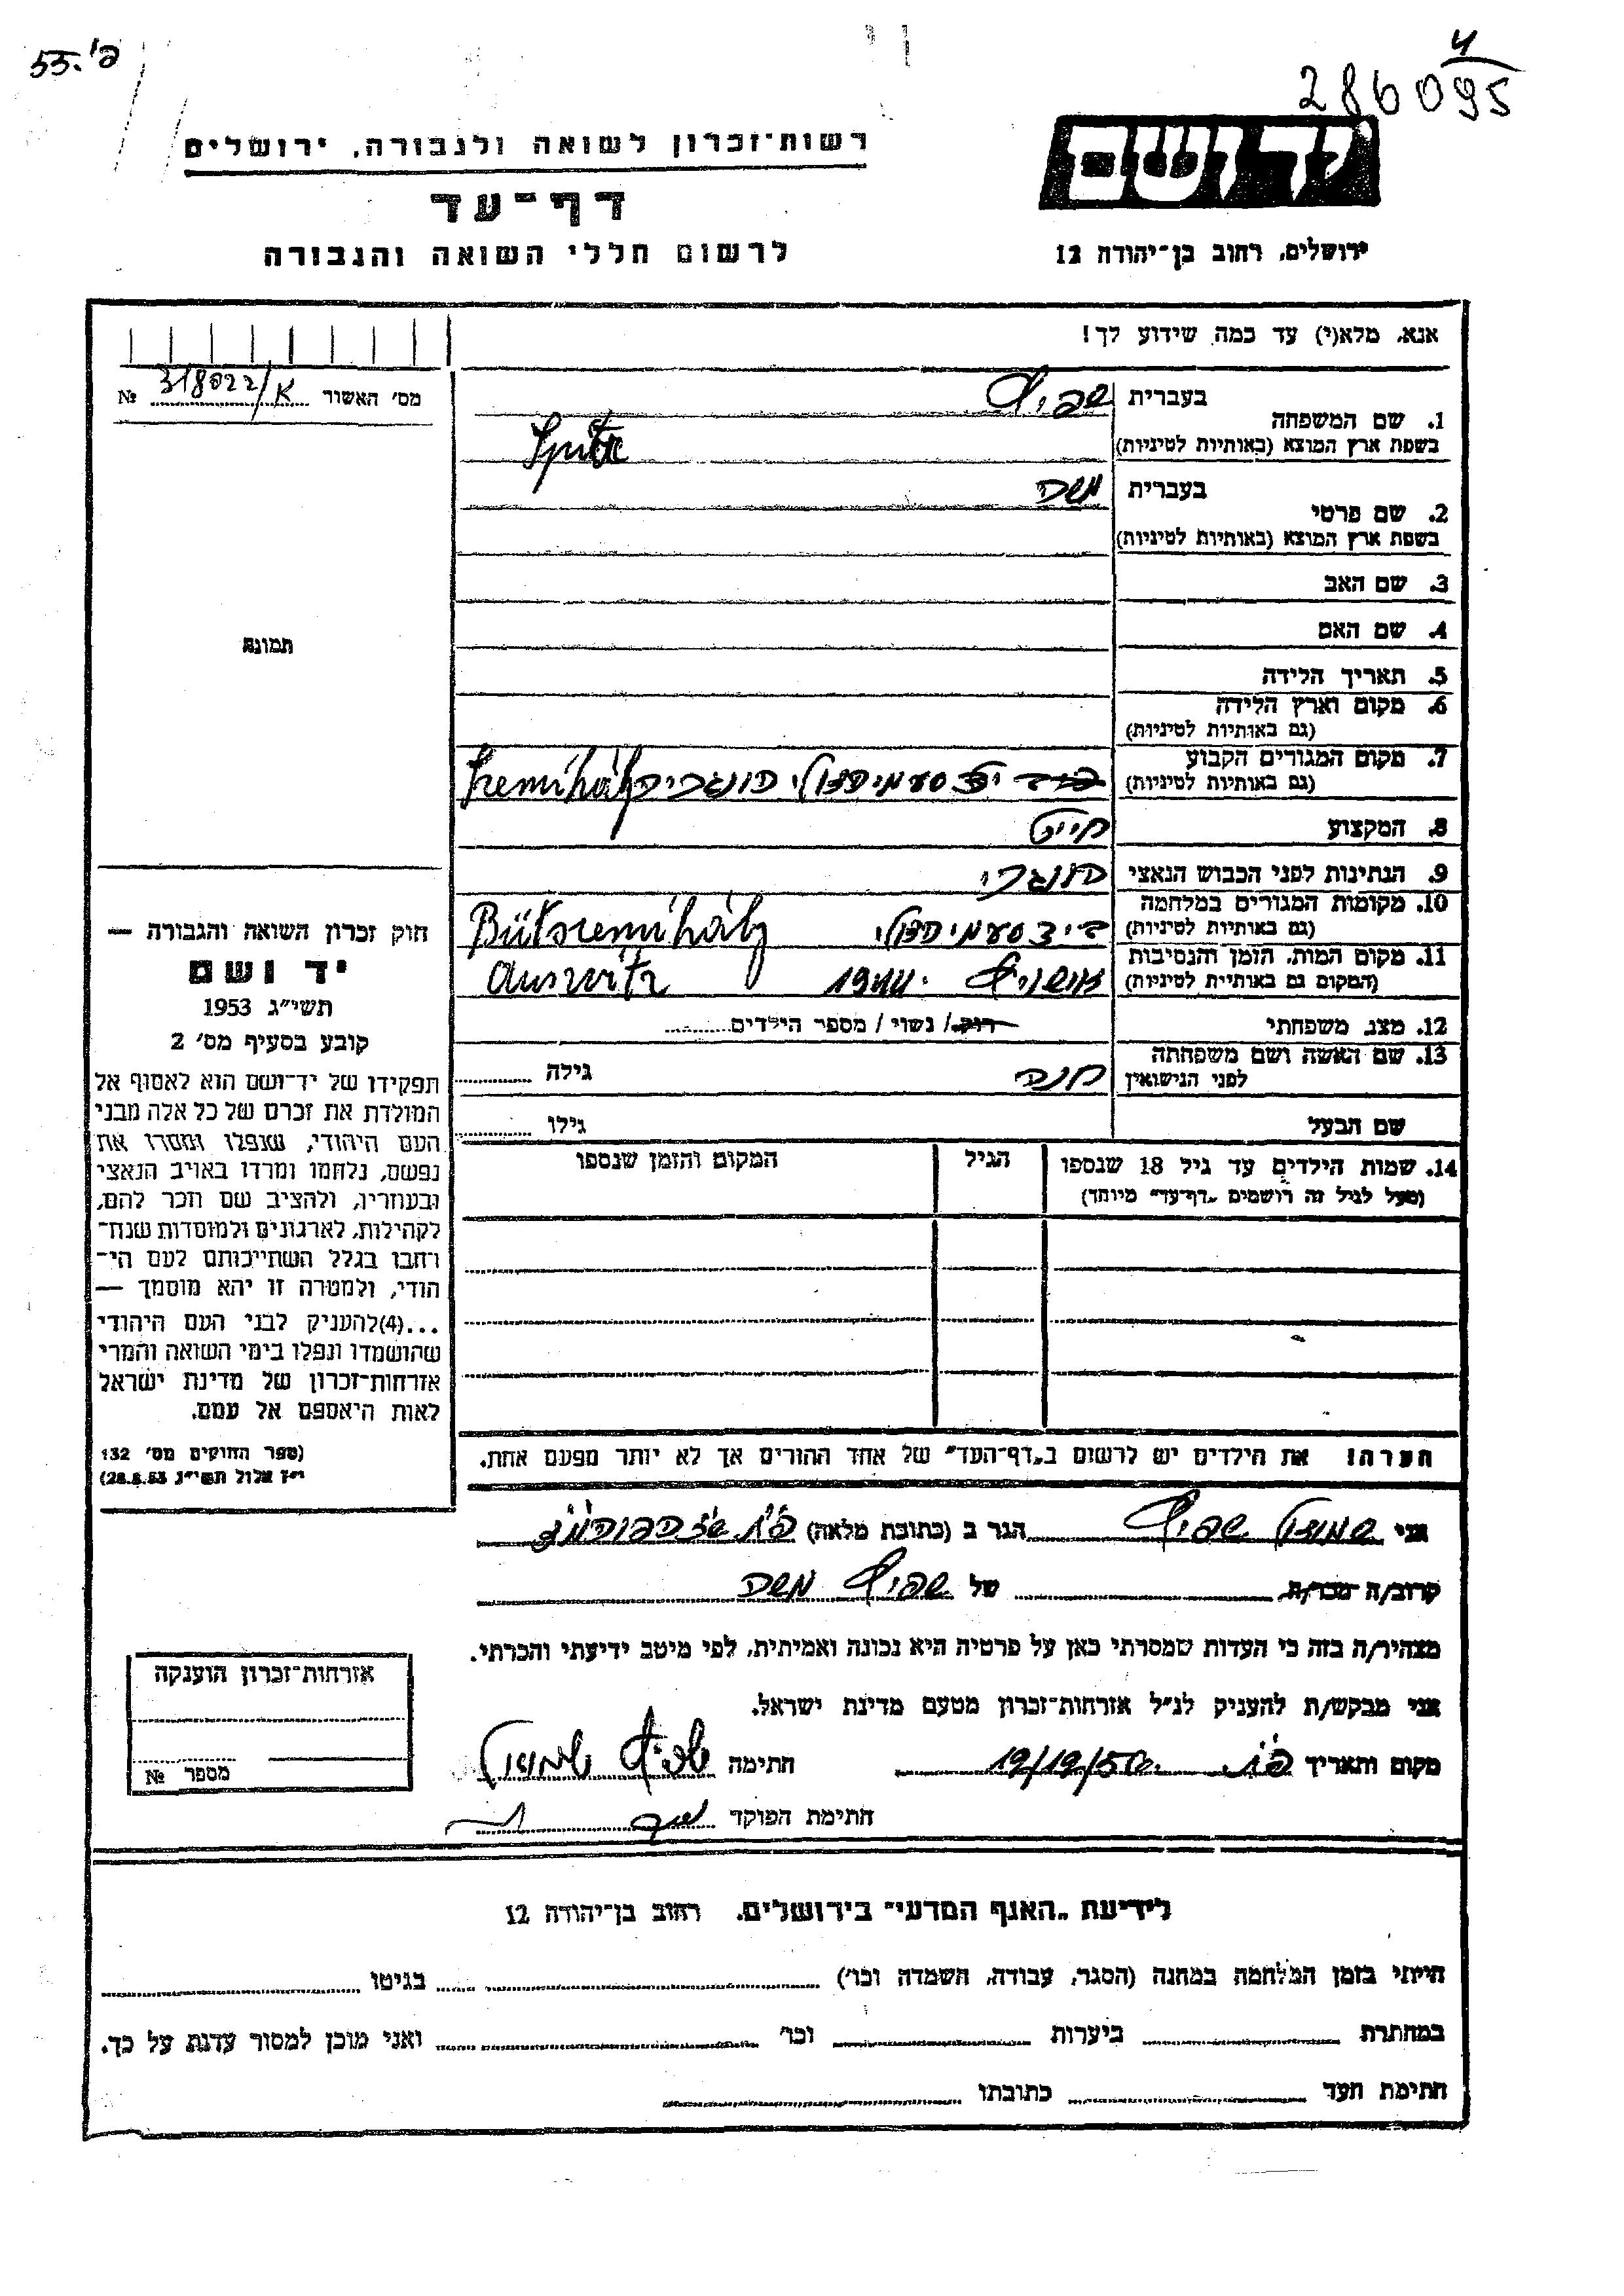 פ'.55
4
286095
יד ושם
רשות־זכרון לשואה ולגבורה, ירושלים
דף־עד
לרשום חללי השואה והגבורה
ירושלים, רחוב בן־יהודה 12
אנא, מלא(י) עד כמה שידוע לך!
מס' האשור 318022/א №
1. שם המשפחה
בעברית שפיץ
בשפת ארץ המוצא (באותיות לטיניות) Spitz
2. שם פרטי
בעברית משה
בשפת ארץ המוצא (באותיות לטיניות)
3. שם האב
4. שם האם
5. תאריך הלידה
6. מקום וארץ הלידה
(גם באותיות לטיניות)
7. מקום המגורים הקבוע
(גם באותיות לטיניות) סעמיהאלי הונגריה Szemihály
8. המקצוע חייט
9. הנתינות לפני הכבוש הנאצי הונגרי
10. מקומות המגורים במלחמה
(גם באותיות לטיניות) ביד סעמיהאלי Bütszemihály
11. מקום המות, הזמן והנסיבות
(המקום גם באותיות לטיניות) אושוויץ 1944. Auswitz
12. מצב משפחתי רוק/ נשוי / מספר הילדים
13. שם האשה ושם משפחתה
לפני הנישואין חנה גילה
שם הבעל גילו
14. שמות הילדים עד גיל 18 שנספו
(מעל לגיל זה רושמים "דף־עד" מיוחד)
הגיל
המקום והזמן שנספו
הערה! את הילדים יש לרשום ב"דף־העד" של אחד ההורים אך לא יותר מפעם אחת.
תמונה
חוק זכרון השואה והגבורה —
יד ושם
תשי"ג 1953
קובע בסעיף מס' 2
תפקידו של יד־ושם הוא לאסוף אל
המולדת את זכרם של כל אלה מבני
העם היהודי, שנפלו ומסרו את
נפשם, נלחמו ומרדו באויב הנאצי
ובעוזריו, ולהציב שם וזכר להם,
לקהילות, לארגונים ולמוסדות שנח־
רחבו בגלל השתייכותם לעם הי־
הודי, ולמטרה זו יהא מוסמך —
...(4) להעניק לבני העם היהודי
שהושמדו ונפלו בימי השואה והמרי
אזרחות־זכרון של מדינת ישראל
לאות היאספם אל עמם.
(ספר החוקים מס' 132
י"ז אלול תשי"ג 28.8.53)
אני שמואל שפיץ הגר ב (כתובת מלאה)
קרוב/ה מכר/ה של שפיץ משה
מצהיר/ה בזה כי העדות שמסרתי כאן על פרטיה היא נכונה ואמיתית, לפי מיטב ידיעתי והכרתי.
אני מבקש/ת להעניק לנ"ל אזרחות־זכרון מטעם מדינת ישראל.
מקום ותאריך חתימה שפיץ שמואל
חתימת הפוקד
אזרחות־זכרון הוענקה
מספר №
לידיעת "האגף המדעי" בירושלים, רחוב בן־יהודה 12
הייתי בזמן המלחמה במחנה (הסגר, עבודה, השמדה וכו') בגיטו
במחתרת ביערות וכו' ואני מוכן למסור עדות על כך.
חתימת העד כתובתו